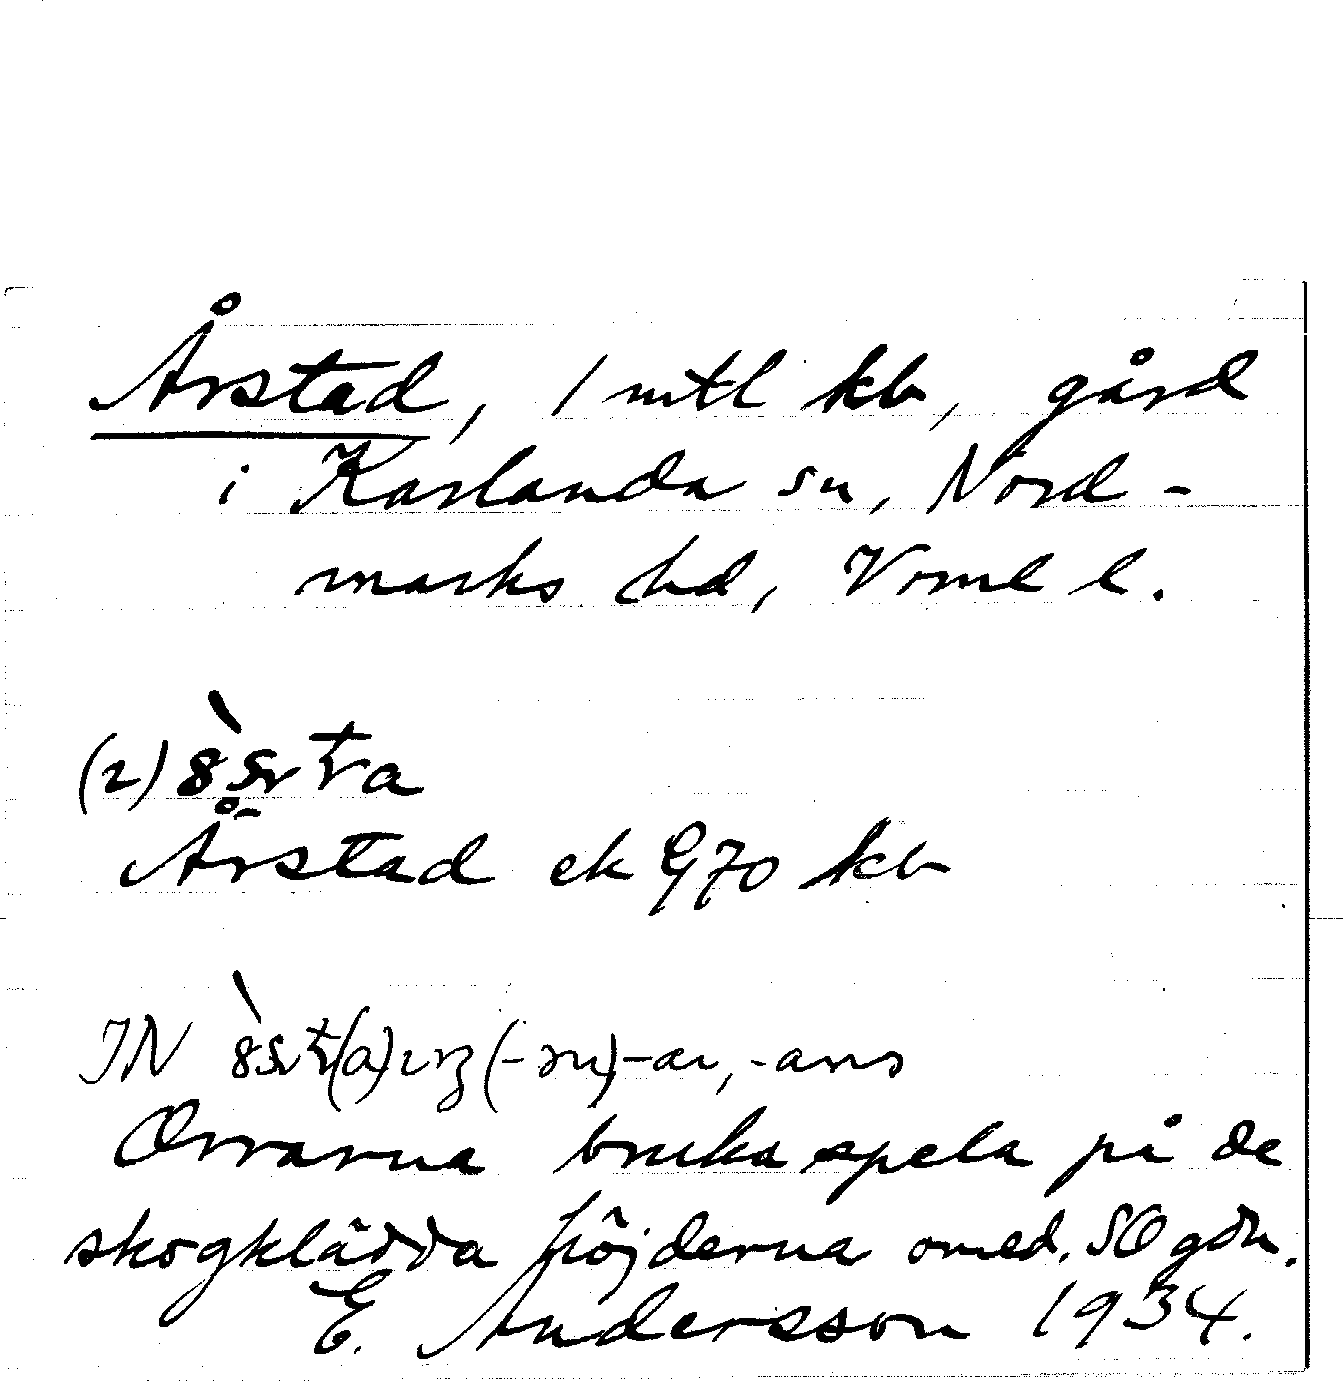 Årstad, 1 mtl kb, gård
i Karlanda sn, Nord-
marks hd, Vrml l.
(2)
Årstad ek 970 kb
IN
Orrarna bruka spela på de
skogklädda höjderna omed. SO gdn.
E. Andersson 1934.